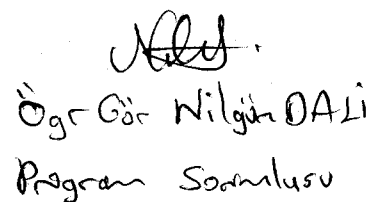 Öğr Gör Nilgün DALİ
Program Sorumlusu